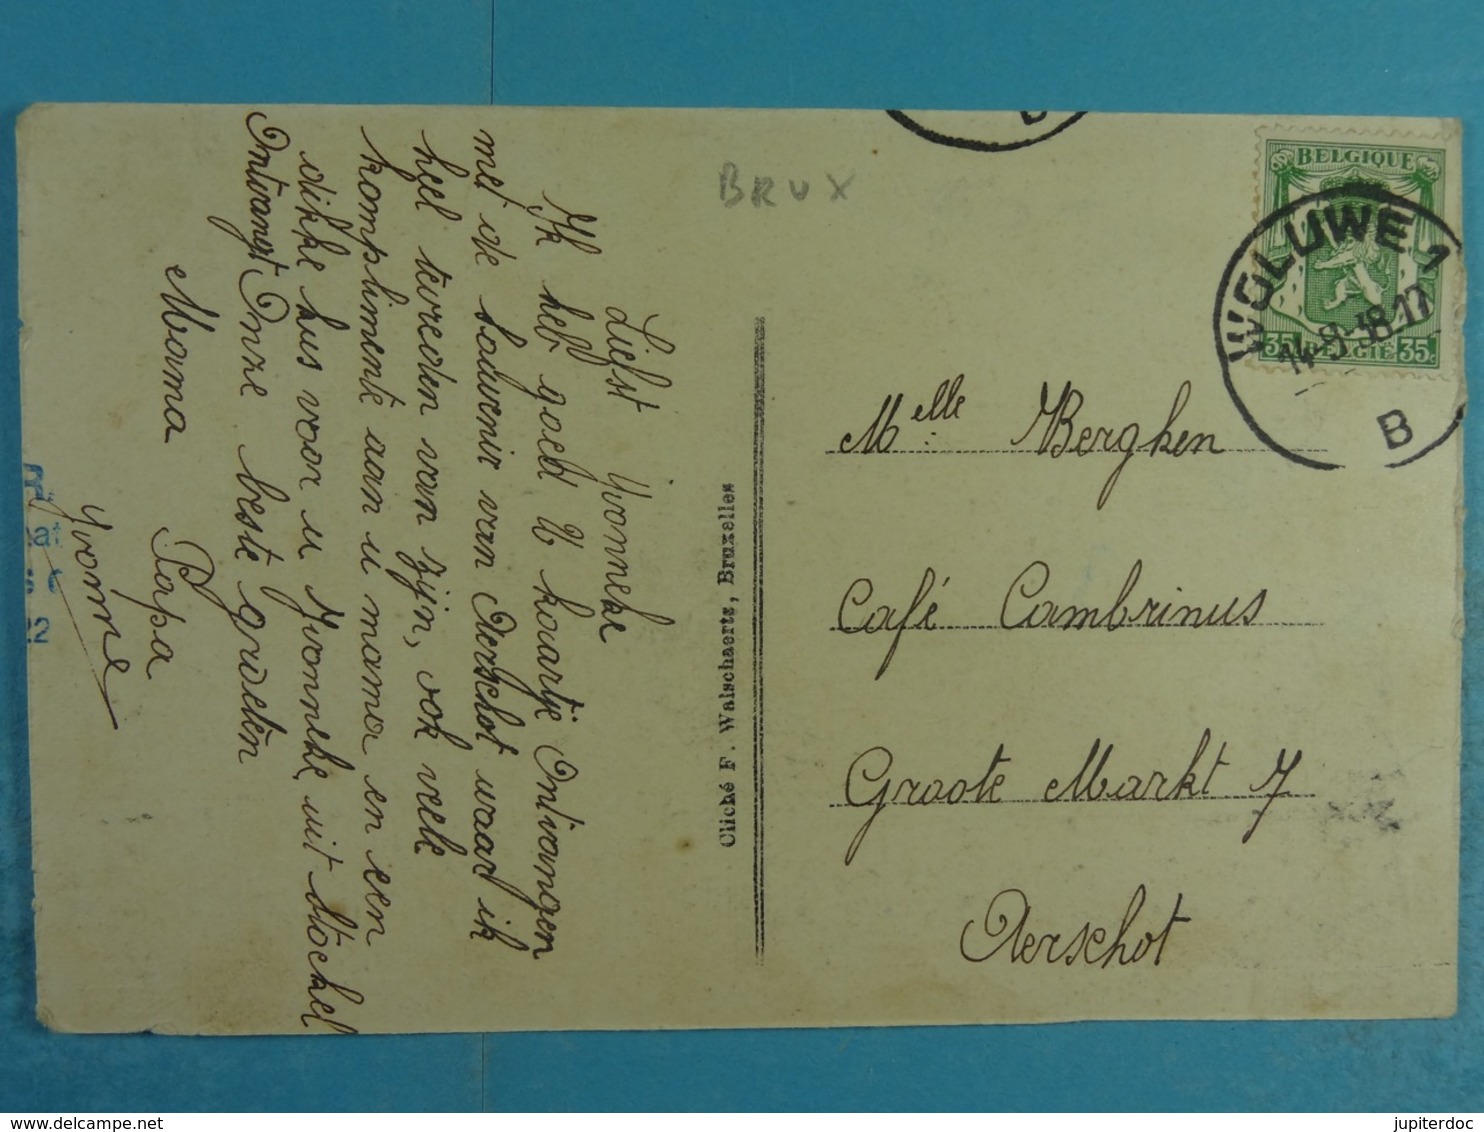 BRUX
BELGIQUE
35 BELGIË 35c
WOLUWE 1
14-8-38-17
B
Liefst Yvonneke
Ik heb goed U kaartje Ontvangen
met de souvenir van Aerschot waar ik
heel tevreden van zijn, ook vele
komplimente aan u mama en een
dikke kus voor u Yvonneke uit Stockel
Ontvangt Onze beste groeten
Mama Papa
Yvonne
Cliché F. Walschaerts, Bruxelles
Melle Berghen
Café Cambrinus
Groote Markt 7
Aerschot
jupiterdoc